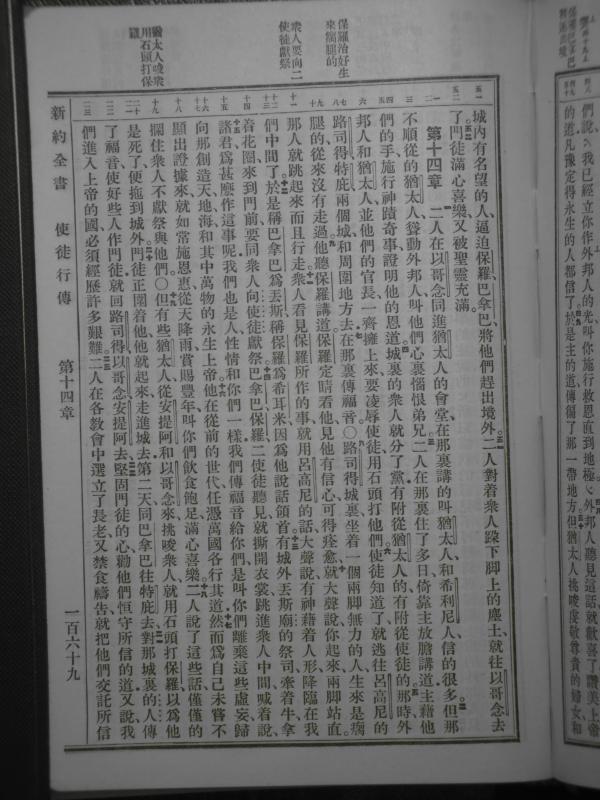 們說、我已經立你作外邦人的光叫你施行救恩直到地極外邦人聽見這話就歡喜了讚美上帝
的道凡豫定得永生的人都信了於是主的道傳徧了那一帶地方但猶太人挑唆虔敬尊貴的婦女和
城內有名望的人逼迫保羅巴拿巴將他們趕出境外二人對着衆人跺下脚上的塵土就往以哥念去
了門徒滿心喜樂又被聖靈充滿
第十四章 二人在以哥念同進猶太人的會堂在那裏講的叫猶太人和希利尼人信的很多但那
不順從的猶太人聳動外邦人叫他們心裏惱恨弟兄二人在那裏住了多日倚靠主放膽講道主藉他
們的手施行神蹟奇事證明他的恩道城裏的衆人就分了黨有附從猶太人的有附從使徒的那時外
邦人和猶太人並他們的官長一齊擁上來要凌辱使徒用石頭打他們使徒知道了就逃往呂高尼的
路司得特庇兩個城和周圍地方去在那裏傳福音〇路司得城裏坐着一個兩脚無力的人生來是瘸
腿的從來沒有走過他聽保羅講道保羅定睛看他見他有信心可得痊愈就大聲說你起來兩脚站直
那人就跳起來而且行走衆人看見保羅所作的事就用呂高尼的話大聲說有神藉着人形降臨在我
們中間了於是稱巴拿巴爲丟斯稱保羅爲希耳米因爲他說話領首有城外丟斯廟的祭司牽着牛拿
着花圈來到門前要同衆人向使徒獻祭巴拿巴保羅二使徒聽見就撕開衣裳跳進衆人中間喊着說
諸君爲甚麽作這事呢我們也是人性情和你們一樣我們傳福音給你們是叫你們離棄這些虛妄歸
向那創造天地海和其中萬物的永生上帝他在從前的世代任憑萬國各行其道然而爲自己未嘗不
顯出證據來就如常施恩惠從天降雨賞賜豐年叫你們飲食飽足滿心喜樂二人說了這些話僅僅的
攔住衆人不獻祭與他們〇但有些猶太人從安提阿和以哥念來挑唆衆人就用石頭打保羅以爲他
是死了便拖到城外門徒正圍着他他就起來走進城去第二天同巴拿巴往特庇去對那城裏的人傳
了福音使好些人作門徒就回路司得以哥念安提阿去堅固門徒的心勸他們恒守所信的道又說我
們進入上帝的國必須經歷許多艱難二人在各敎會中選立了長老又禁食禱告就把他們交託所信
保羅治好生
來瘸腿的
衆人要向二
使徒獻祭
猶太人唆衆
用石頭打保
羅
新約全書 使徒行傳 第十四章 一百六十九